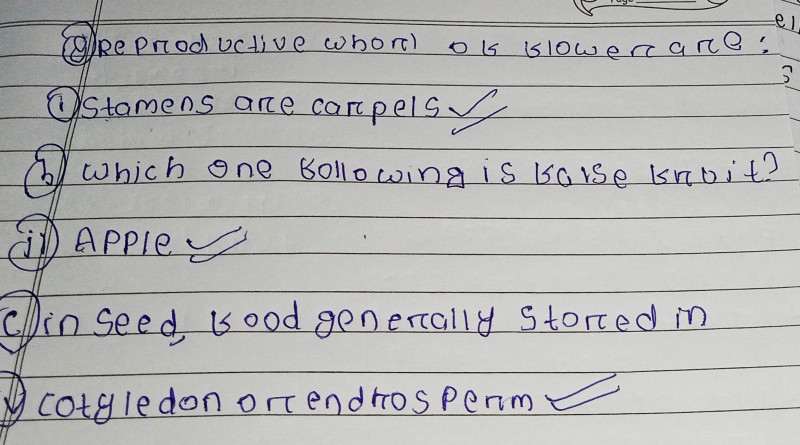 (a) Reproductive whorl of flower are:
(i) Stamens are carpels
(b) which one following is false fruit?
(ii) Apple
(c) in seed, food generally stored in
cotyledon or endhosperm